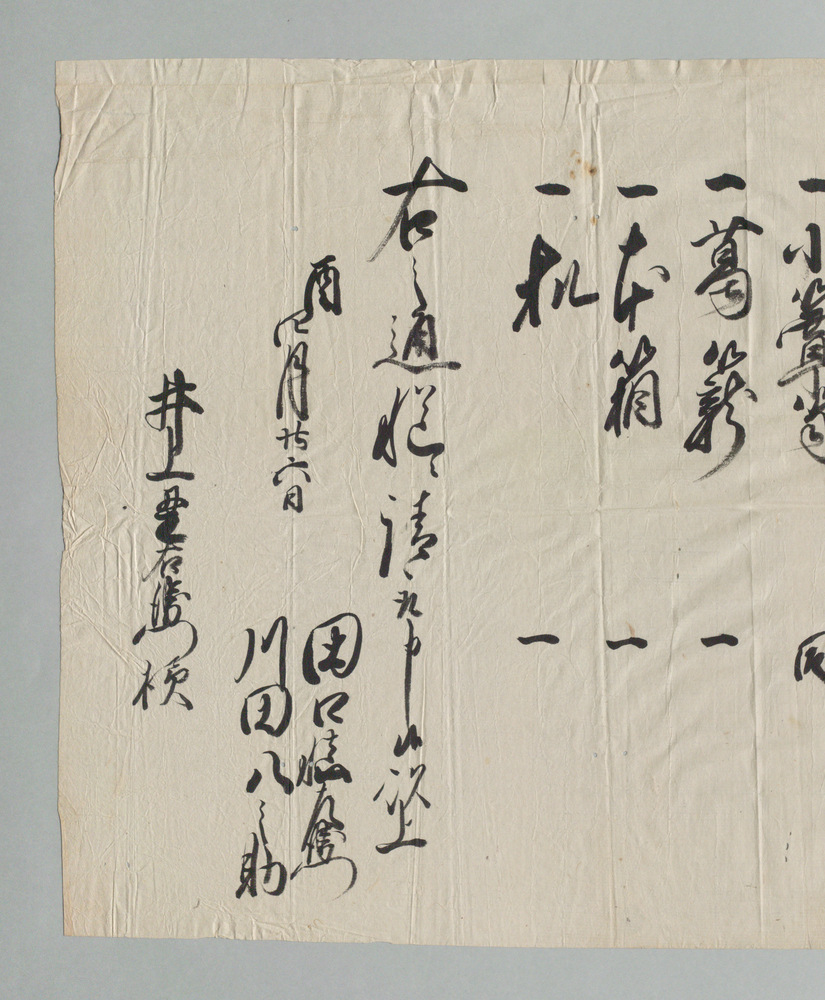 一 小箪笥
一 葛籠 一
一 本箱 一
一 机 一
右之通慥ニ請取申候以上
酉四月廿六日
田口
川田八之助
井上 右衛門様